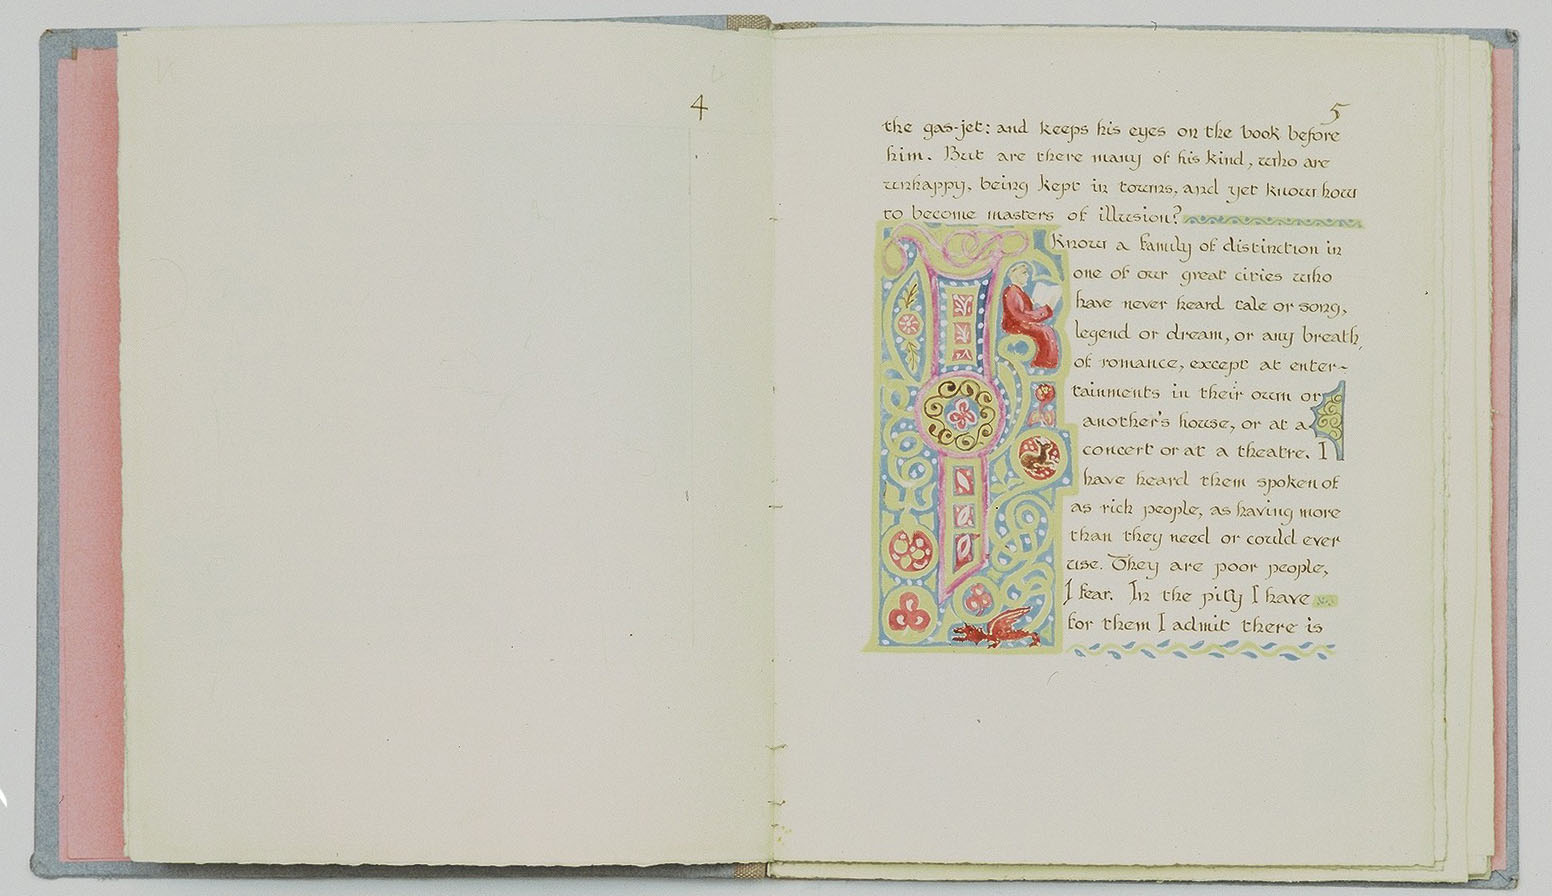 4
5
the gas-jet: and keeps his eyes on the book before
him. But are there many of his kind, who are
unhappy, being kept in towns, and yet know how
to become masters of illusion?
I know a family of distinction in
one of our great cities who
have never heard tale or song,
legend or dream, or any breath
of romance, except at enter-
tainments in their own or
another's house, or at a
concert or at a theatre. I
have heard them spoken of
as rich people, as having more
than they need or could ever
use. They are poor people,
I fear. In the pity I have
for them I admit there is